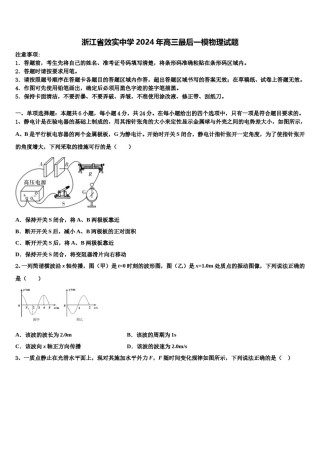 浙江省效实中学2024年高三最后一模物理试题
注意事项:
1．答题前，考生先将自己的姓名、准考证号码填写清楚，将条形码准确粘贴在条形码区域内。
2．答题时请按要求用笔。
3．请按照题号顺序在答题卡各题目的答题区域内作答，超出答题区域书写的答案无效；在草稿纸、试卷上答题无效。
4．作图可先使用铅笔画出，确定后必须用黑色字迹的签字笔描黑。
5．保持卡面清洁，不要折暴、不要弄破、弄皱，不准使用涂改液、修正带、刮纸刀。
一、单项选择题：本题共6小题，每小题4分，共24分。在每小题给出的四个选项中，只有一项是符合题目要求的。
1、静电计是在验电器的基础上制成的，用其指针张角的大小来定性显示金属球与外壳之间的电势差大小，如图所示，
A、B是平行板电容器的两个金属极板，G为静电计，开始时开关S闭合，静电计指针张开一定角度，为了使指针张开
的角度增大，下列采取的措施可行的是（ ）
高压电源
A．保持开关S闭合，将A、B两极板靠近
B．断开开关S后，减小A、B两极板的正对面积
C．断开开关S后，将A、B两极板靠近
D．保持开关S闭合，将变阻器滑片向右移动
2、一列简谐横波沿x轴传播，图（甲）是t=0时刻的波形图，图（乙）是x=1.0m处质点的振动图像，下列说法正确的
是（ ）
A．该波的波长为2.0m B．该波的周期为1s
C．该波向x轴正方向传播 D．该波的波速为2.0m/s
3、一质点静止在光滑水平面上，现对其施加水平外力F，F随时间变化规律如图所示，下列说法正确的是（ ）